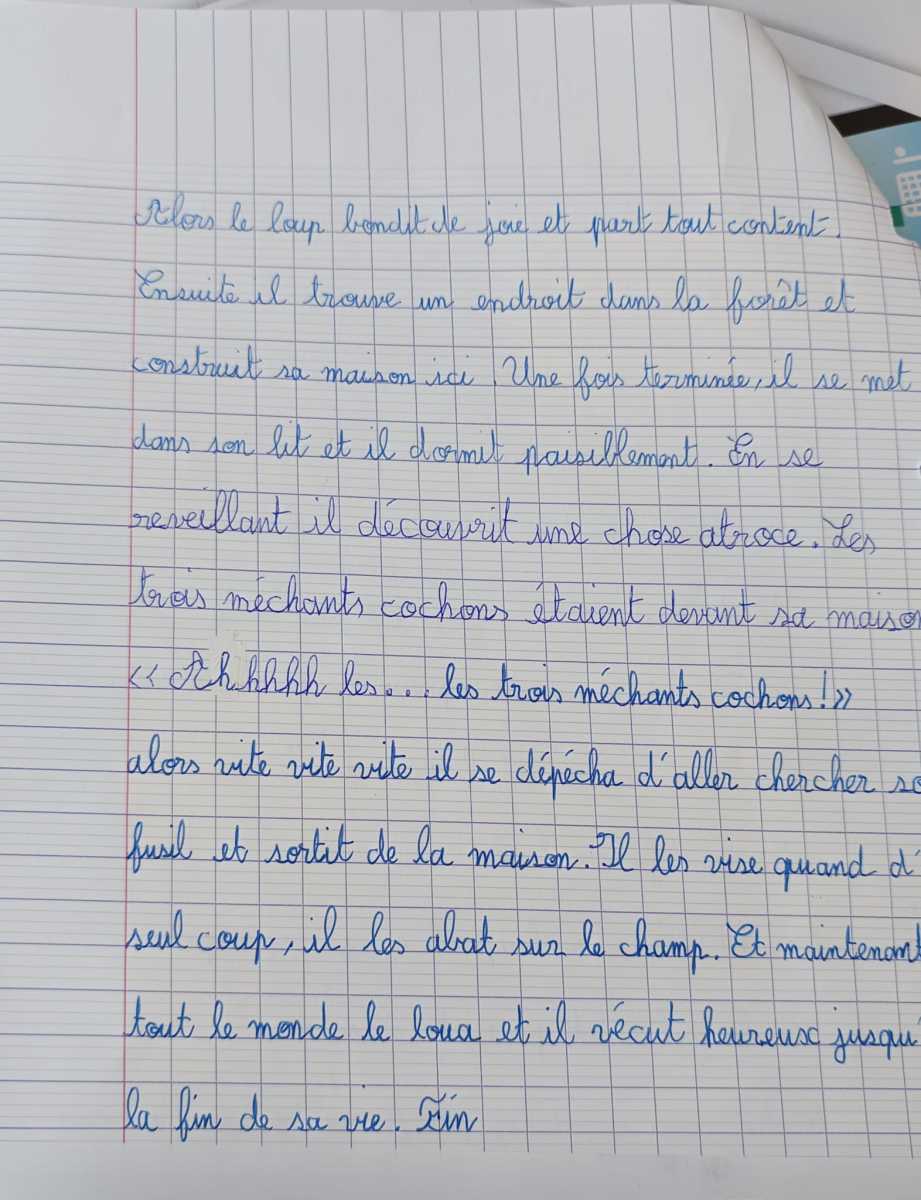 Alors le loup bondit de joie et part tout content.
Ensuite il trouve un endroit dans la forêt et
construit sa maison ici. Une fois terminée, il se met
dans son lit et il dormit paisiblement. En se
reveillant il découvrit une chose atroce. Les
trois méchants cochons étaient devant sa maison
<< Ahhhhh les... les trois méchants cochons! >>
alors vite vite vite il se dépécha d'aller chercher so
fusil et sortit de la maison. Il les vise quand d'
seul coup, il les abat sur le champ. Et maintenant
tout le monde le loua et il vécut heureux jusqu'
la fin de sa vie. Fin